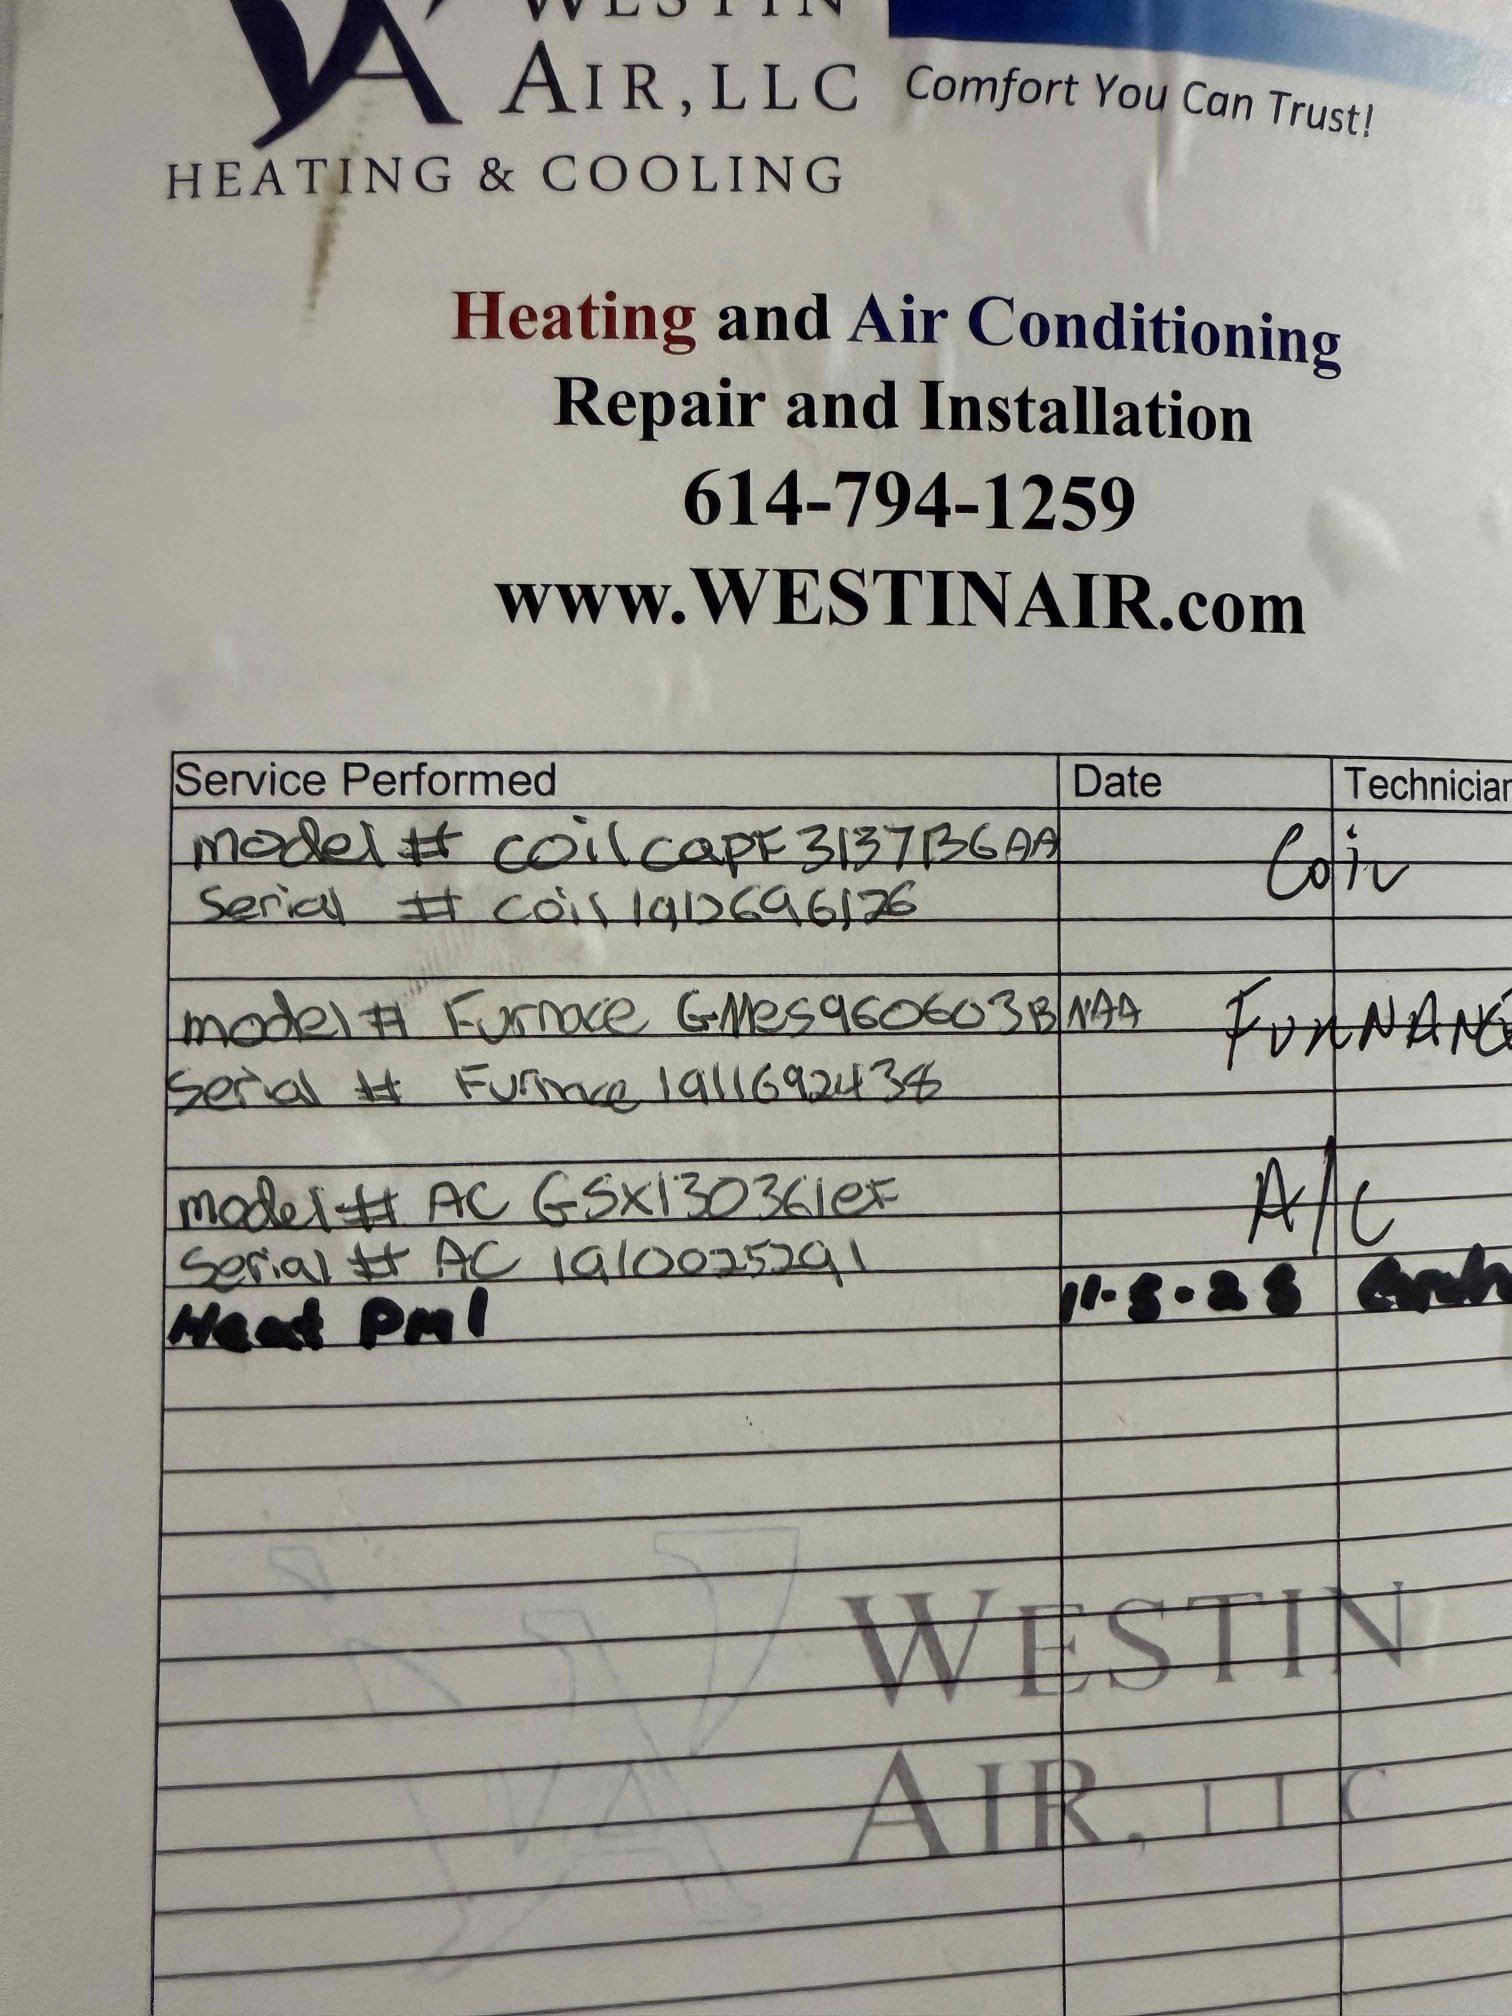 WESTIN
AIR, LLC
Comfort You Can Trust!
HEATING & COOLING
Heating and Air Conditioning
Repair and Installation
614-794-1259
www.WESTINAIR.com
Service Performed Date Technician
model # coil capF3137B6AA Coil
Serial # coil 1912696126
model # Furnace GMes960603BNAA FurNANCE
Serial # Furnace 1911692438
model # AC GSX130361eF A/C
Serial # AC 1910025291
Heat Pm1
WESTIN
AIR, LLC